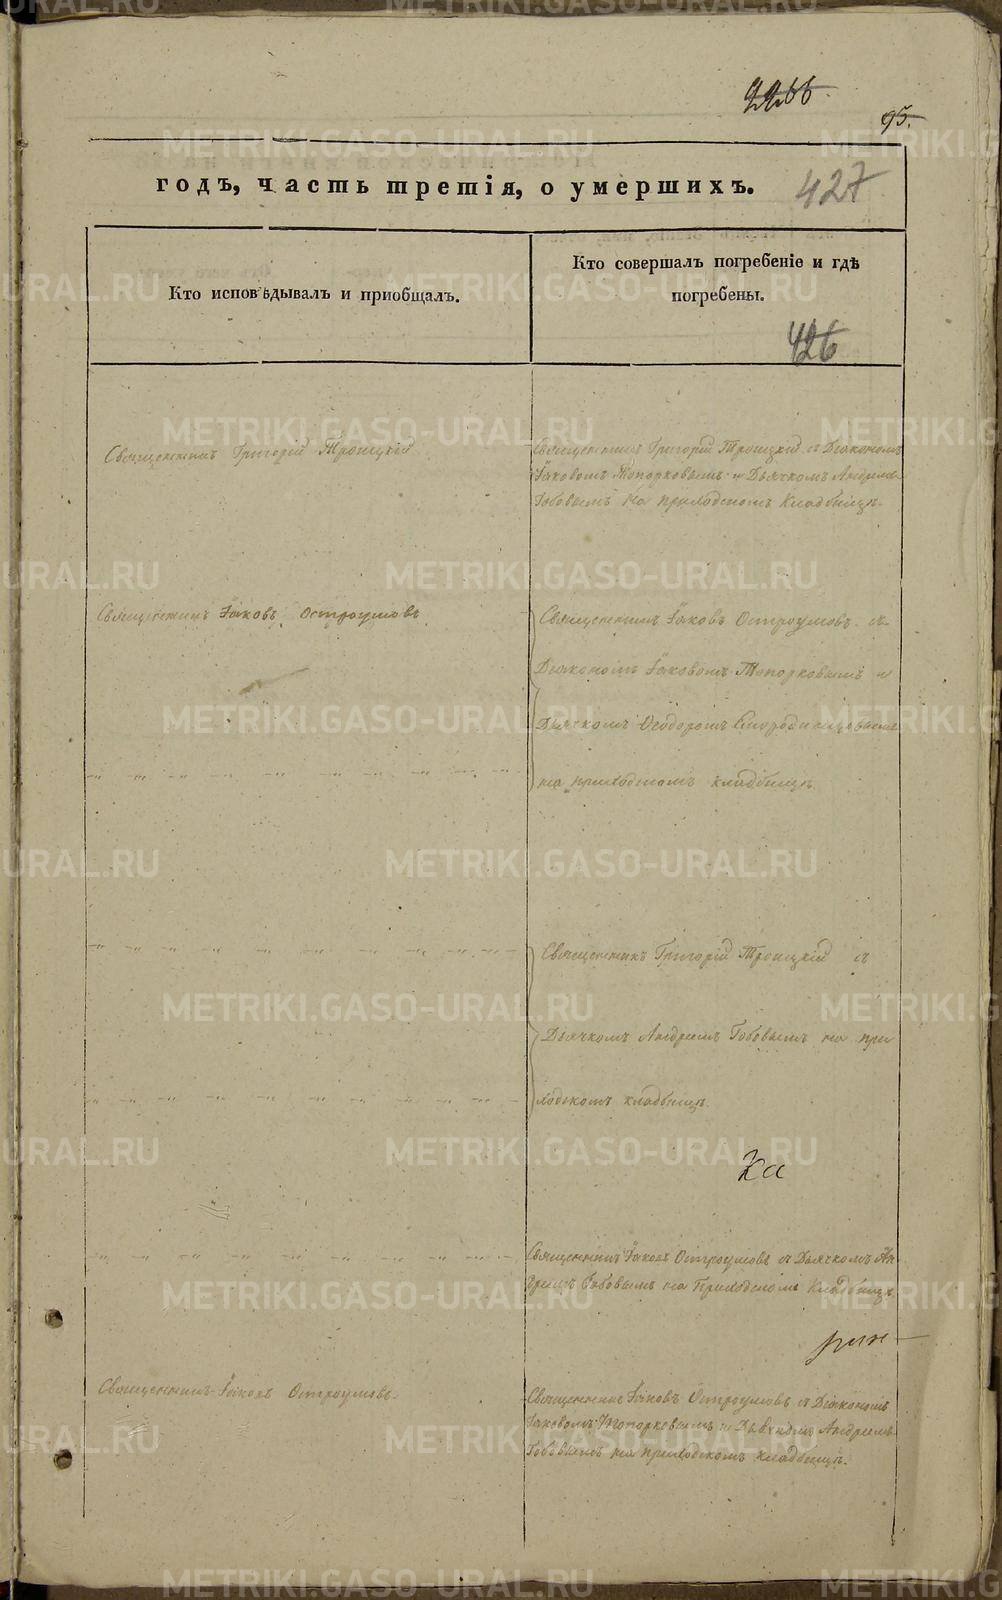 95.
годъ, часть третія, о умершихъ.
427
Кто исповѣдывалъ и приобщалъ.
Кто совершалъ погребеніе и гдѣ
погребены.
426
Священникъ Григорій Троицкій
Священникъ Григорій Троицкій съ Діакономъ
Іаковомъ Топорковымъ и Дьячкомъ Андреемъ
Гобовымъ на приходскомъ Кладбищѣ.
Священникъ Іаковъ Остроумовъ
Священникъ Іаковъ Остроумовъ съ
Діакономъ Іаковомъ Топорковымъ и
Дьячкомъ Ѳеодоромъ
на приходскомъ кладбищѣ
Священникъ Григорій Троицкій съ
Дьячкомъ Андреемъ Гобовымъ на при
ходскомъ кладбищѣ.
Ка
Священникъ Іаковъ Остроумовъ съ Дьячкомъ Ан
дреемъ Гобовымъ на Приходскомъ Кладбищѣ
Священникъ Іаковъ Остроумовъ.
Священникъ Іаковъ Остроумовъ съ Діакономъ
Іаковомъ Топорковымъ и Дьячкомъ Андреемъ
Гобовымъ на приходскомъ кладбищѣ.
METRIKI.GASO-URAL.RU